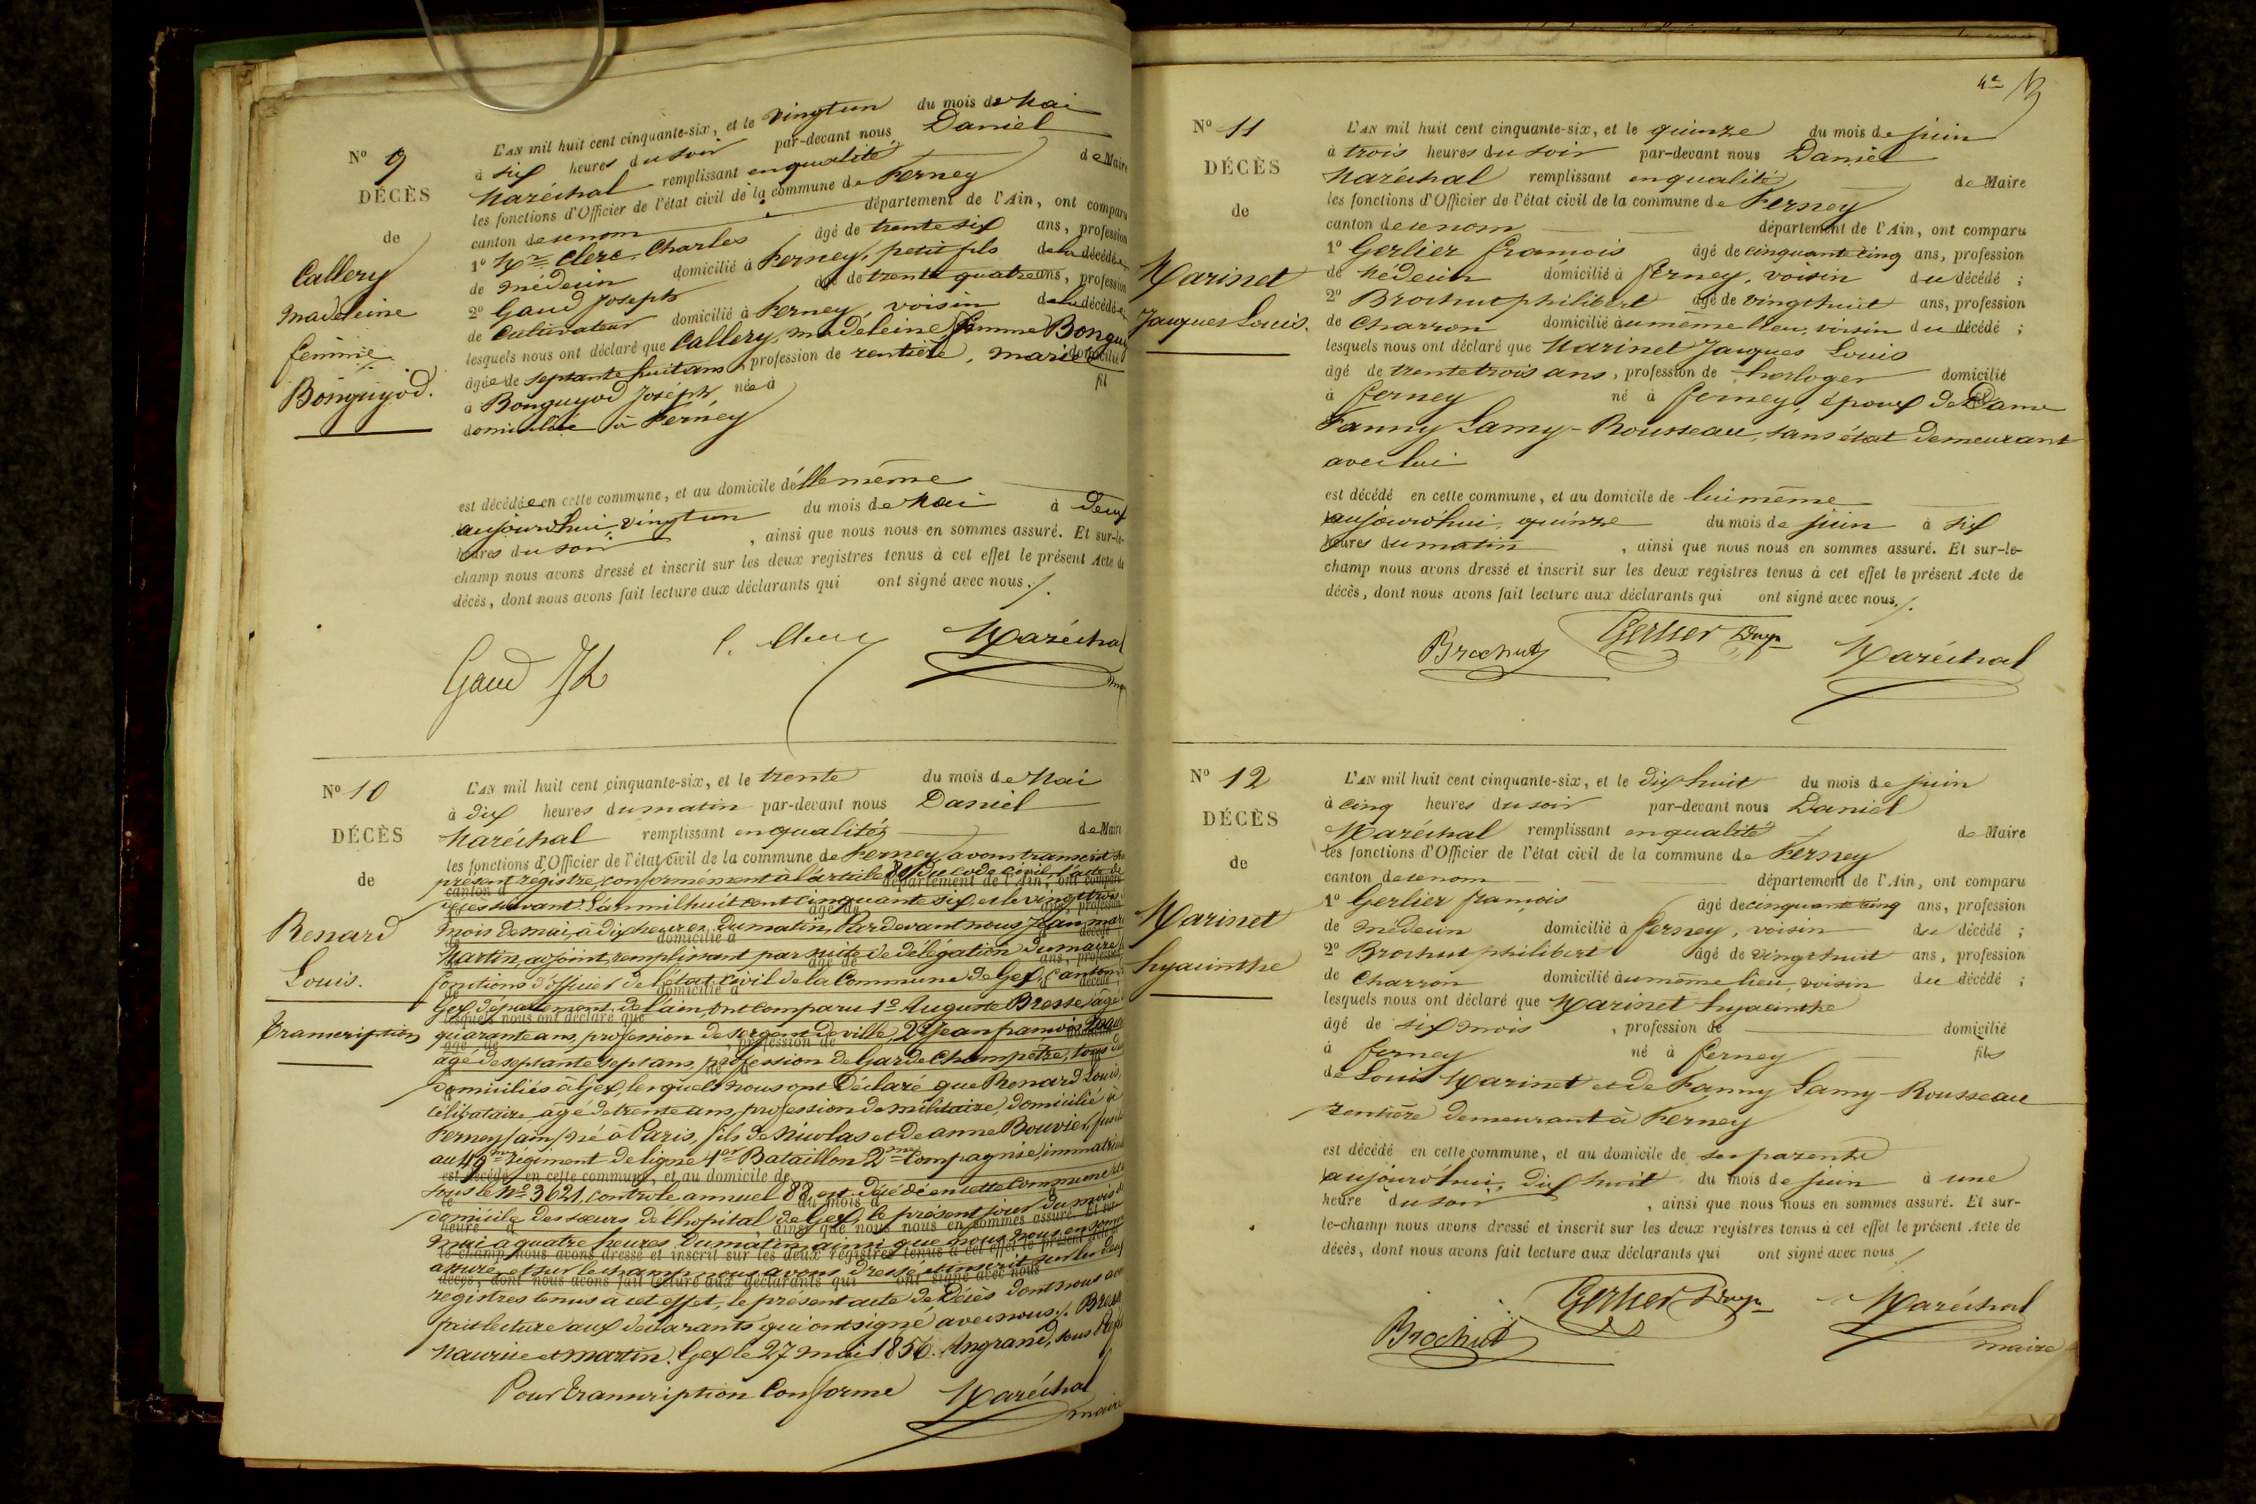 No 9
DÉCÈS
de
Callery
Madeleine
femme
Bonguyod.
L'AN mil huit cent cinquante-six, et le vingtun du mois de Mai
à six heures du soir par-devant nous Daniel
Maréchal remplissant en qualité de Maire
les fonctions d'Officier de l'état civil de la commune de Ferney
canton de cenom département de l'Ain, ont comparu
1o Mr Clerc Charles âgé de trente six ans, profession
de médecin domicilié à Ferney, petit fils de la décédée
2o Gaud Joseph âgé de trente quatre ans, profession
de Cultivateur domicilié à Ferney, voisin de la décédée
lesquels nous ont déclaré que Callery, Madeleine femme
âgée de septante huit ans, profession de rentière, mariée domicilié
à Bonguyod Joseph née à fil
domiciliée à Ferney
est décédée en cette commune, et au domicile d'ellemême
aujourd'hui vingtun du mois de Mai à deux
heures du soir, ainsi que nous nous en sommes assuré. Et sur-le-
champ nous avons dressé et inscrit sur les deux registres tenus à cet effet le présent Acte de
décès, dont nous avons fait lecture aux déclarants qui ont signé avec nous./.
Gaud C. Clerc Maréchal
No 10
DÉCÈS
de
Renard
Louis.
Transcription
L'AN mil huit cent cinquante-six, et le trente du mois de Mai
à dix heures du matin par-devant nous Daniel
Maréchal remplissant en qualité de Maire
les fonctions d'Officier de l'état civil de la commune de Ferney avons transcrit
présent régistre, conformément à l'article du Code civil, l'acte de
décès suivant: L'an mil huit cent cinquante six, et le vingt trois
mois de mai, à dix heures du matin, Pardevant nous Jean
Martin, adjoint, remplissant par suite de délégation du maire
fonctions d'officier de l'état civil de la Commune de Gex, Canton
Gex département de l'ain ont comparu 1o Auguste Bresse âgé
quarante ans, profession de sergent de ville, 2o Jean françois
âgé de septante sept ans, profession de Garde Champêtre, tous
domiciliés à Gex, lesquels nous ont Déclaré que Renard Louis,
célibataire âgé de trente ans, profession de militaire, domicilié à
Ferney (ain) né à Paris, fils de Nicolas et de anne Bouvier,
au 49me régiment de ligne 1er Bataillon 2me compagnie,
sous le No 3621, contrôle annuel 88 est décédé en cette commune
domicile des sœurs de l'hopital de Gex, le présent jour du mois
mai à quatre heures du matin, ainsi que nous nous en
assuré, et sur le champ nous avons dressé et inscrit sur les deux
registres tenus à cet effet, le présent acte de Décès dont nous
fait lecture aux déclarants qui ont signé avec nous./.
Maurice et Martin. Gex le 27 mai 1856. Angrand, sous
Pour transcription Conforme Maréchal
maire
4e
No 11
DÉCÈS
de
Marinet
Jacques Louis.
L'AN mil huit cent cinquante-six, et le quinze du mois de juin
à trois heures du soir par-devant nous Daniel
Maréchal remplissant en qualité de Maire
les fonctions d'Officier de l'état civil de la commune de Ferney
canton de cenom département de l'Ain, ont comparu
1o Gerlier francois âgé de cinquante cinq ans, profession
de Médecin domicilié à ferney, voisin du décédé ;
2o Brochut philibert âgé de vingthuit ans, profession
de Charron domicilié au même lieu, voisin du décédé ;
lesquels nous ont déclaré que Marinet Jacques Louis
âgé de trente trois ans, profession de horloger domicilié
à ferney né à ferney, époux de Dame
Fanny Lamy-Rousseau, sans état demeurant
avec lui
est décédé en cette commune, et au domicile de lui même
aujourd'hui, quinze du mois de juin à six
heures du matin, ainsi que nous nous en sommes assuré. Et sur-le-
champ nous avons dressé et inscrit sur les deux registres tenus à cet effet le présent Acte de
décès, dont nous avons fait lecture aux déclarants qui ont signé avec nous./.
Brochut Gerlier Maréchal
No 12
DÉCÈS
de
Marinet
hyacinthe
L'AN mil huit cent cinquante-six, et le dix huit du mois de juin
à cinq heures du soir par-devant nous Daniel
Maréchal remplissant en qualité de Maire
les fonctions d'Officier de l'état civil de la commune de Ferney
canton de cenom département de l'Ain, ont comparu
1o Gerlier françois âgé de cinquante cinq ans, profession
de médecin domicilié à ferney, voisin du décédé ;
2o Brochut philibert âgé de vingthuit ans, profession
de Charron domicilié au même lieu, voisin du décédé ;
lesquels nous ont déclaré que Marinet hyacinthe
âgé de six mois, profession de domicilié
à ferney né à ferney fils
de Louis Marinet et de Fanny Lamy-Rousseau
rentière demeurant à Ferney
est décédé en cette commune, et au domicile de ses parents
aujourd'hui, dix huit du mois de juin à une
heure du soir, ainsi que nous nous en sommes assuré. Et sur-
le-champ nous avons dressé et inscrit sur les deux registres tenus à cet effet le présent Acte de
décès, dont nous avons fait lecture aux déclarants qui ont signé avec nous
Brochut Gerlier Maréchal
maire